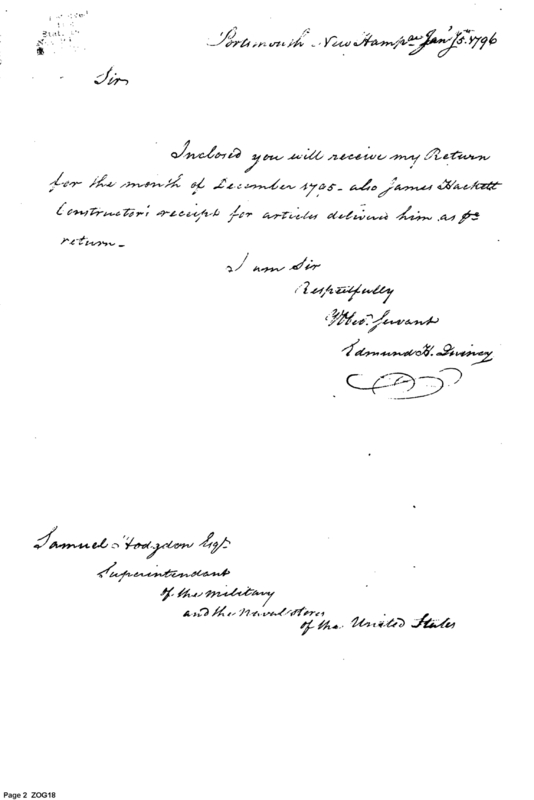 Portsmouth New Hampre Jany 5th 1796
Sir
Inclosed you will receive my Return
for the month of December 1795 - also James Hackett
Constructor's receipt for articles delivered him as pr
return -
I am Sir
Respectfully
Yr Obet. Servant
Edmund H. Quincy
Samuel Hodgdon Esqr.
Superintendant
of the military
and the Naval stores
of the United States
Page 2 ZOG18